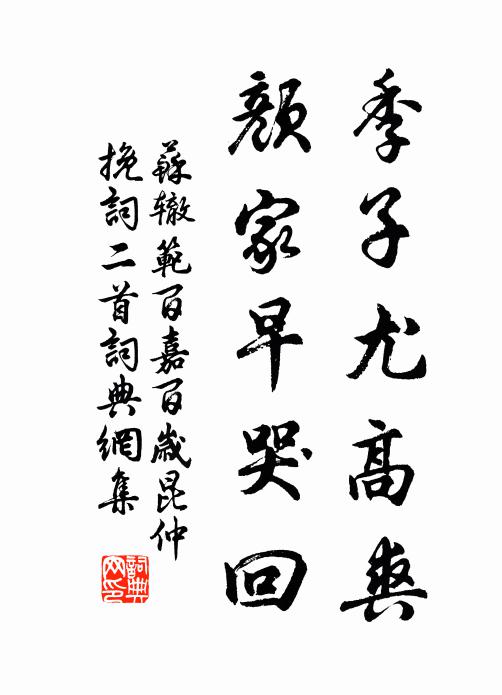 季子尤高爽
颜家早哭回
蘇辙範百嘉百歲昆仲
挽詞二首詞典網集
詞典网印